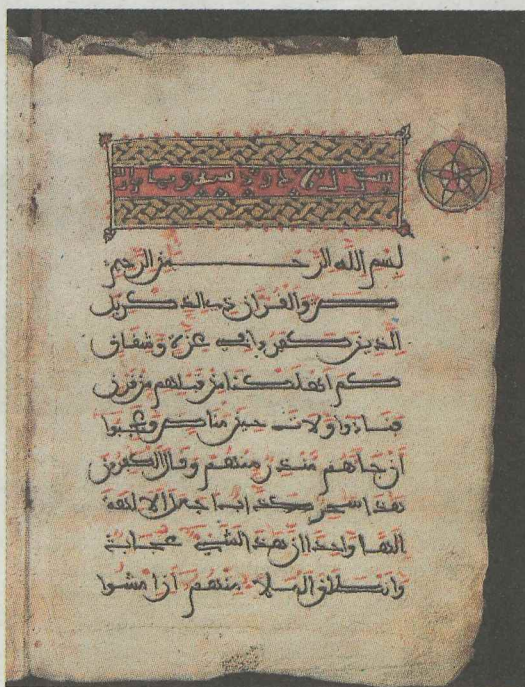 بسم الله الرحمن الرحيم
ص والقران ذي الذكر بل
الذين كفروا في عزة وشقاق
كم اهلكنا من قبلهم من قرن
فنادوا ولات حين مناص وعجبوا
ان جاهم منذر منهم وقال الكفرون
هذا سحر كذاب اجعل الالهة
الها واحدا ان هذا لشيء عجاب
وانطلق الملا منهم ان امشوا